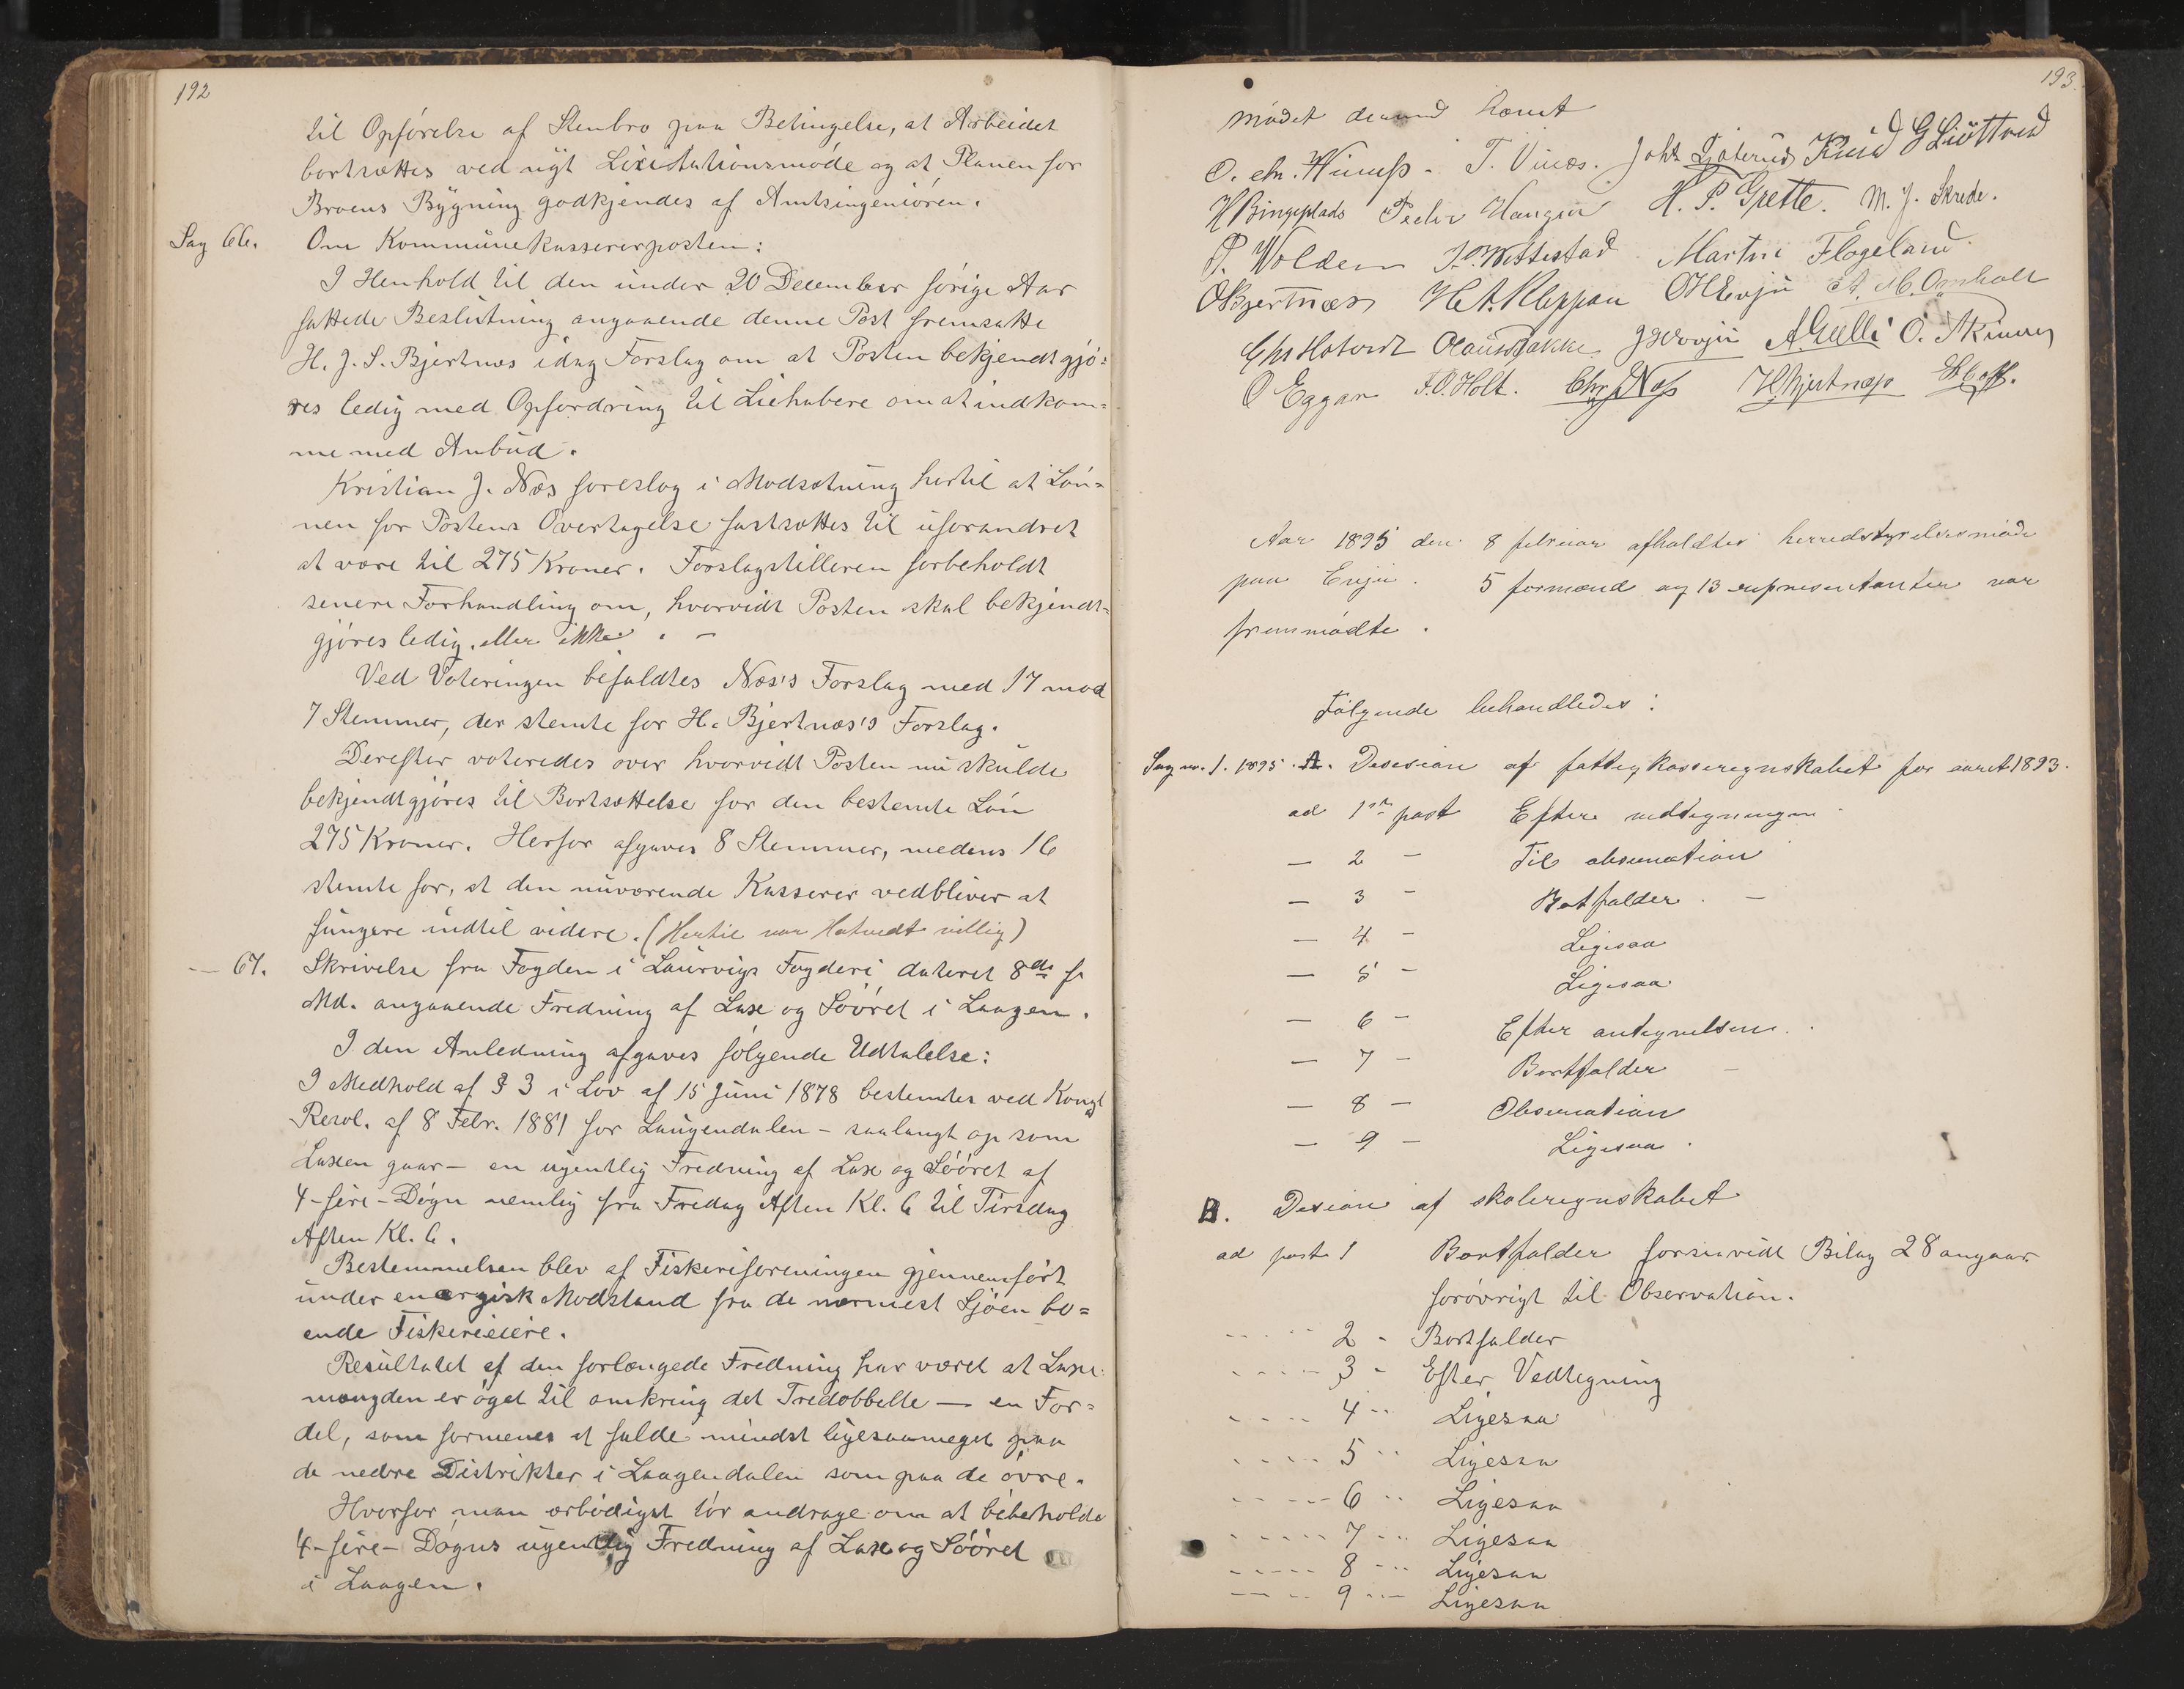 192
til Opførelse af Stenbro paa Betingelse, at Arbeidet
bortsættes ved nyt Lixitationsmøde og at Planen for
Broens Bygning godkjendes af Amtsingeniøren.
Sag 66. Om Kommunekassererposten:
I Henhold til den under 20 December forige Aar
fattede Beslutning angaaende denne Post fremsatte
H. J. S. Bjertnæs idag Forslag om at Posten bekjendtgjø=
res ledig med Opfordring til Liehabere om at indkom=
me med Anbud.
Kristian J. Næs foreslog i Modsætning hertil at Løn=
nen for Postens Overtagelse fastsættes til uforandret
at være til 275 Kroner. Forslagstilleren forbeholdt
senere Forhandling om, hvorvidt Posten skal bekjendt=
gjøres ledig, eller ikke. -
Ved Voteringen befaldtes Næs's Forslag med 17 mod
7 Stemmer, der stemte for H. Bjertnæs's Forslag.
Derefter voteredes over hvorvidt Posten nu skulde
bekjendtgjøres til Bortsættelse for den bestemte Løn
275 Kroner. Herfor afgaves 8 Stemmer, medens 16
stemte for, at den nuværende Kasserer vedbliver at
fungere indtil videre. (Hertil var Hatvedt villig)
— 67. Skrivelse fra Fogden i Laurvigs Fogderi dateret 8de f.
Md. angaaende Fredning af Laxe og Søøret i Laagen.
I den Anledning afgaves følgende Udtalelse:
I Medhold af § 3 i Lov af 15 Juni 1878 bestemtes ved Kongl
Resol. af 8 Febr. 1881 for Laugendalen - saalangt op som
Laxen gaar - en ugentlig Fredning af Laxe og Søøret af
4-fire-Døgn nemlig fra Fredag Aften Kl. 6 til Tirsdag
Aften Kl. 6.
Bestemmelsen blev af Fiskeriforeningen gjennemført
under energisk Modstand fra de nærmest Sjøen bo=
ende Fiskerieiere.
Resultatet af den forlængede Fredning har været at Laxe
mængden er øget til omkring det Tredobbelte — en For=
del, som formenes at falde mindst ligesaameget paa
de nedre Distrikter i Laagendalen som paa de øvre.
Hvorfor man ærbødigst tør andrage om at bibeholde
4-fire-Døgns ugentlig Fredning af Laxe og Søøret
i Laagen.
193.
mødet dermed hævet
O. chr. T. Vinæs. Knud G Liøtterud
H Bingeplads H. P. Grette. M. J. Skrede.
P. Wolden Martin Flogeland
O Bjertnæs H. A. Kleppan OH Evju A. M. Omholt
Chr Hatvedt Olaus Bakke A. Gulli O.
O Eggar F. O. Holt. Chr J Næss H. Bjertnæss
Aar 1895 den 8 februar afholdtes herredstyrelsesmøde
paa Evju. 5 formænd og 13 representanter var
fremmødte.
Følgende behandledes:
Sag no. 1. 1895. A. Desision af fattigkasseregnskabet for aaret 1893.
ad 1ste post Efter vedtegningen
— 2 - Til observation
— 3 - Bortfalder. —
— 4 - Ligesaa
— 5 - Ligesaa
— 6 - Efter antegnelsen.
— 7 - Bortfalder —
— 8 - Observation
— 9 - Ligesaa.
B. Desion af skoleregnskabet
ad post 1 Bortfalder forsavidt Bilag 28 angaar.
forøvrigt til Observation.
2 - Bortfalder
3 - Efter Vedtegning
4 - Ligesaa
5 - Ligesaa
6 - Ligesaa
7 - Ligesaa
8 - Ligesaa
9 - Ligesaa